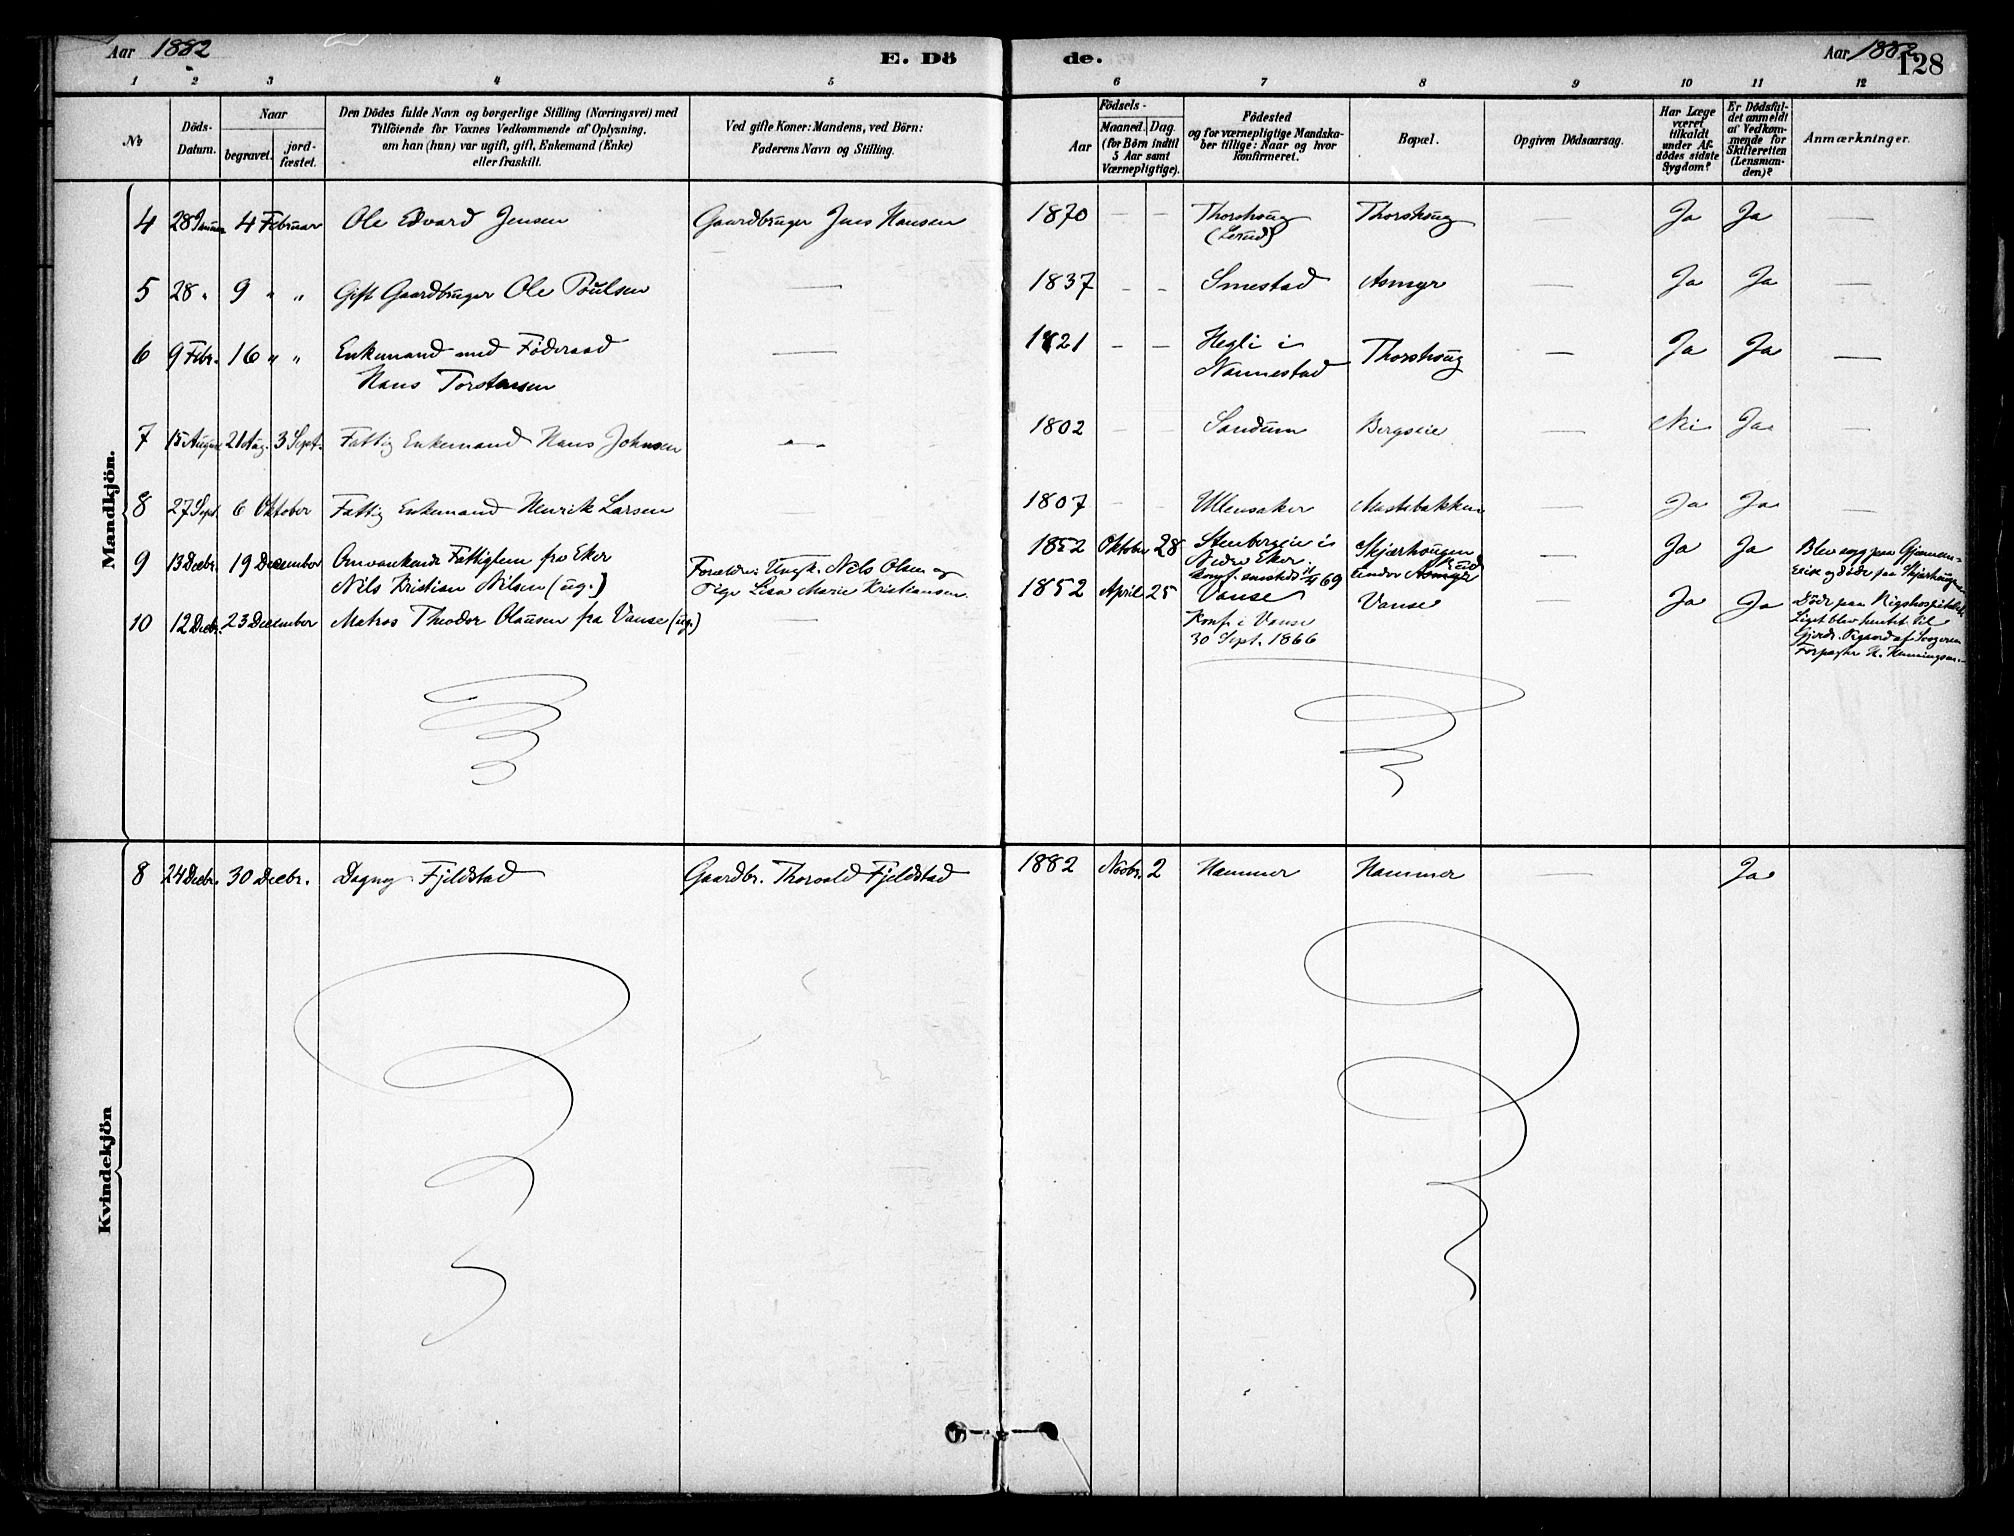 Aar 1882
E. Dö
de.
Aar 1882
128
1 2 3 4 5 6 7 8 9 10 11 12
No
Döds-Datum.
Naar
begravet.
jord-fæstet.
Den Dödes fulde Navn og borgerlige Stilling (Næringsvei) med
Tilföiende for Voxnes Vedkommende af Oplysning,
om han (hun) var ugift, gift, Enkemand (Enke)
eller fraskilt.
Ved gifte Koner: Mandens, ved Börn:
Faderens Navn og Stilling.
Födsels-
Aar
Maaned. Dag.
(for Börn indtil
5 Aar samt
Værnepligtige).
Födested
og for værnepligtige Mandska-
ber tillige: Naar og hvor
konfirmeret.
Bopæl.
Opgiven Dödsaarsag.
Har Læge
været
tilkaldt
under Af-
dödes sidste
Sygdom?
Er Dödsfal-
det anmeldt
af Vedkom-
mende for
Skifteretten
(Lensman-
den)?
Anmærkninger.
Mandkjön.
4 28 Januar 4 Februar Ole Edvard Jensen Gaardbruger Jens Hansen 1870 — — Thorshoug Thorshoug Ja Ja —
(Lerud)
5 28 " 9 " " Gift Gaardbruger Ole Poulsen — 1837 — — Smestad Asmyr — Ja Ja —
6 9 Febr. 16 " " Enkemand med Föderaad — 1821 — — Hegli i Thorshoug — Ja Ja —
Hans Torstensen Nannestad
7 15 August 21 Aug. 3 Sept. Fattig Enkemand Hans Johnsen — 1802 Sandum Bergseie — Nei Ja —
8 27 Sept. 6 Oktober Fattig Enkemand Henrik Larsen — 1807 — — Ullensaker — Ja Ja —
9 13 Decbr. 19 December Omvankende Fattiglem fra Eker Forældre: Ungk. Nils Olsen og 1852 Oktober 28 Stenbergeie i Skjærhougen — Ja Ja Blev syg paa
Nedre Eker under
Nils Kristian Nilsen (ug.) Pige Lisa Marie Kristiansen. Konf. 69 og döde paa
10 12 Decbr. 23 December Matros Theodor Olausen fra Vanse (ug.) — 1852 April 25 Vanse Vanse — Ja Ja Döde paa Rigshospitalet
Konf. i Vanse Liget blev hentet til
30 Sept. 1866 af
Forpagter H. Henningsen
Kvindekjön
8 24 Decbr. 30 Decbr. Dagny Fjeldstad Gaardbr. Thorvald Fjeldstad 1882 Novbr. 2 Hammer Hammer — Ja